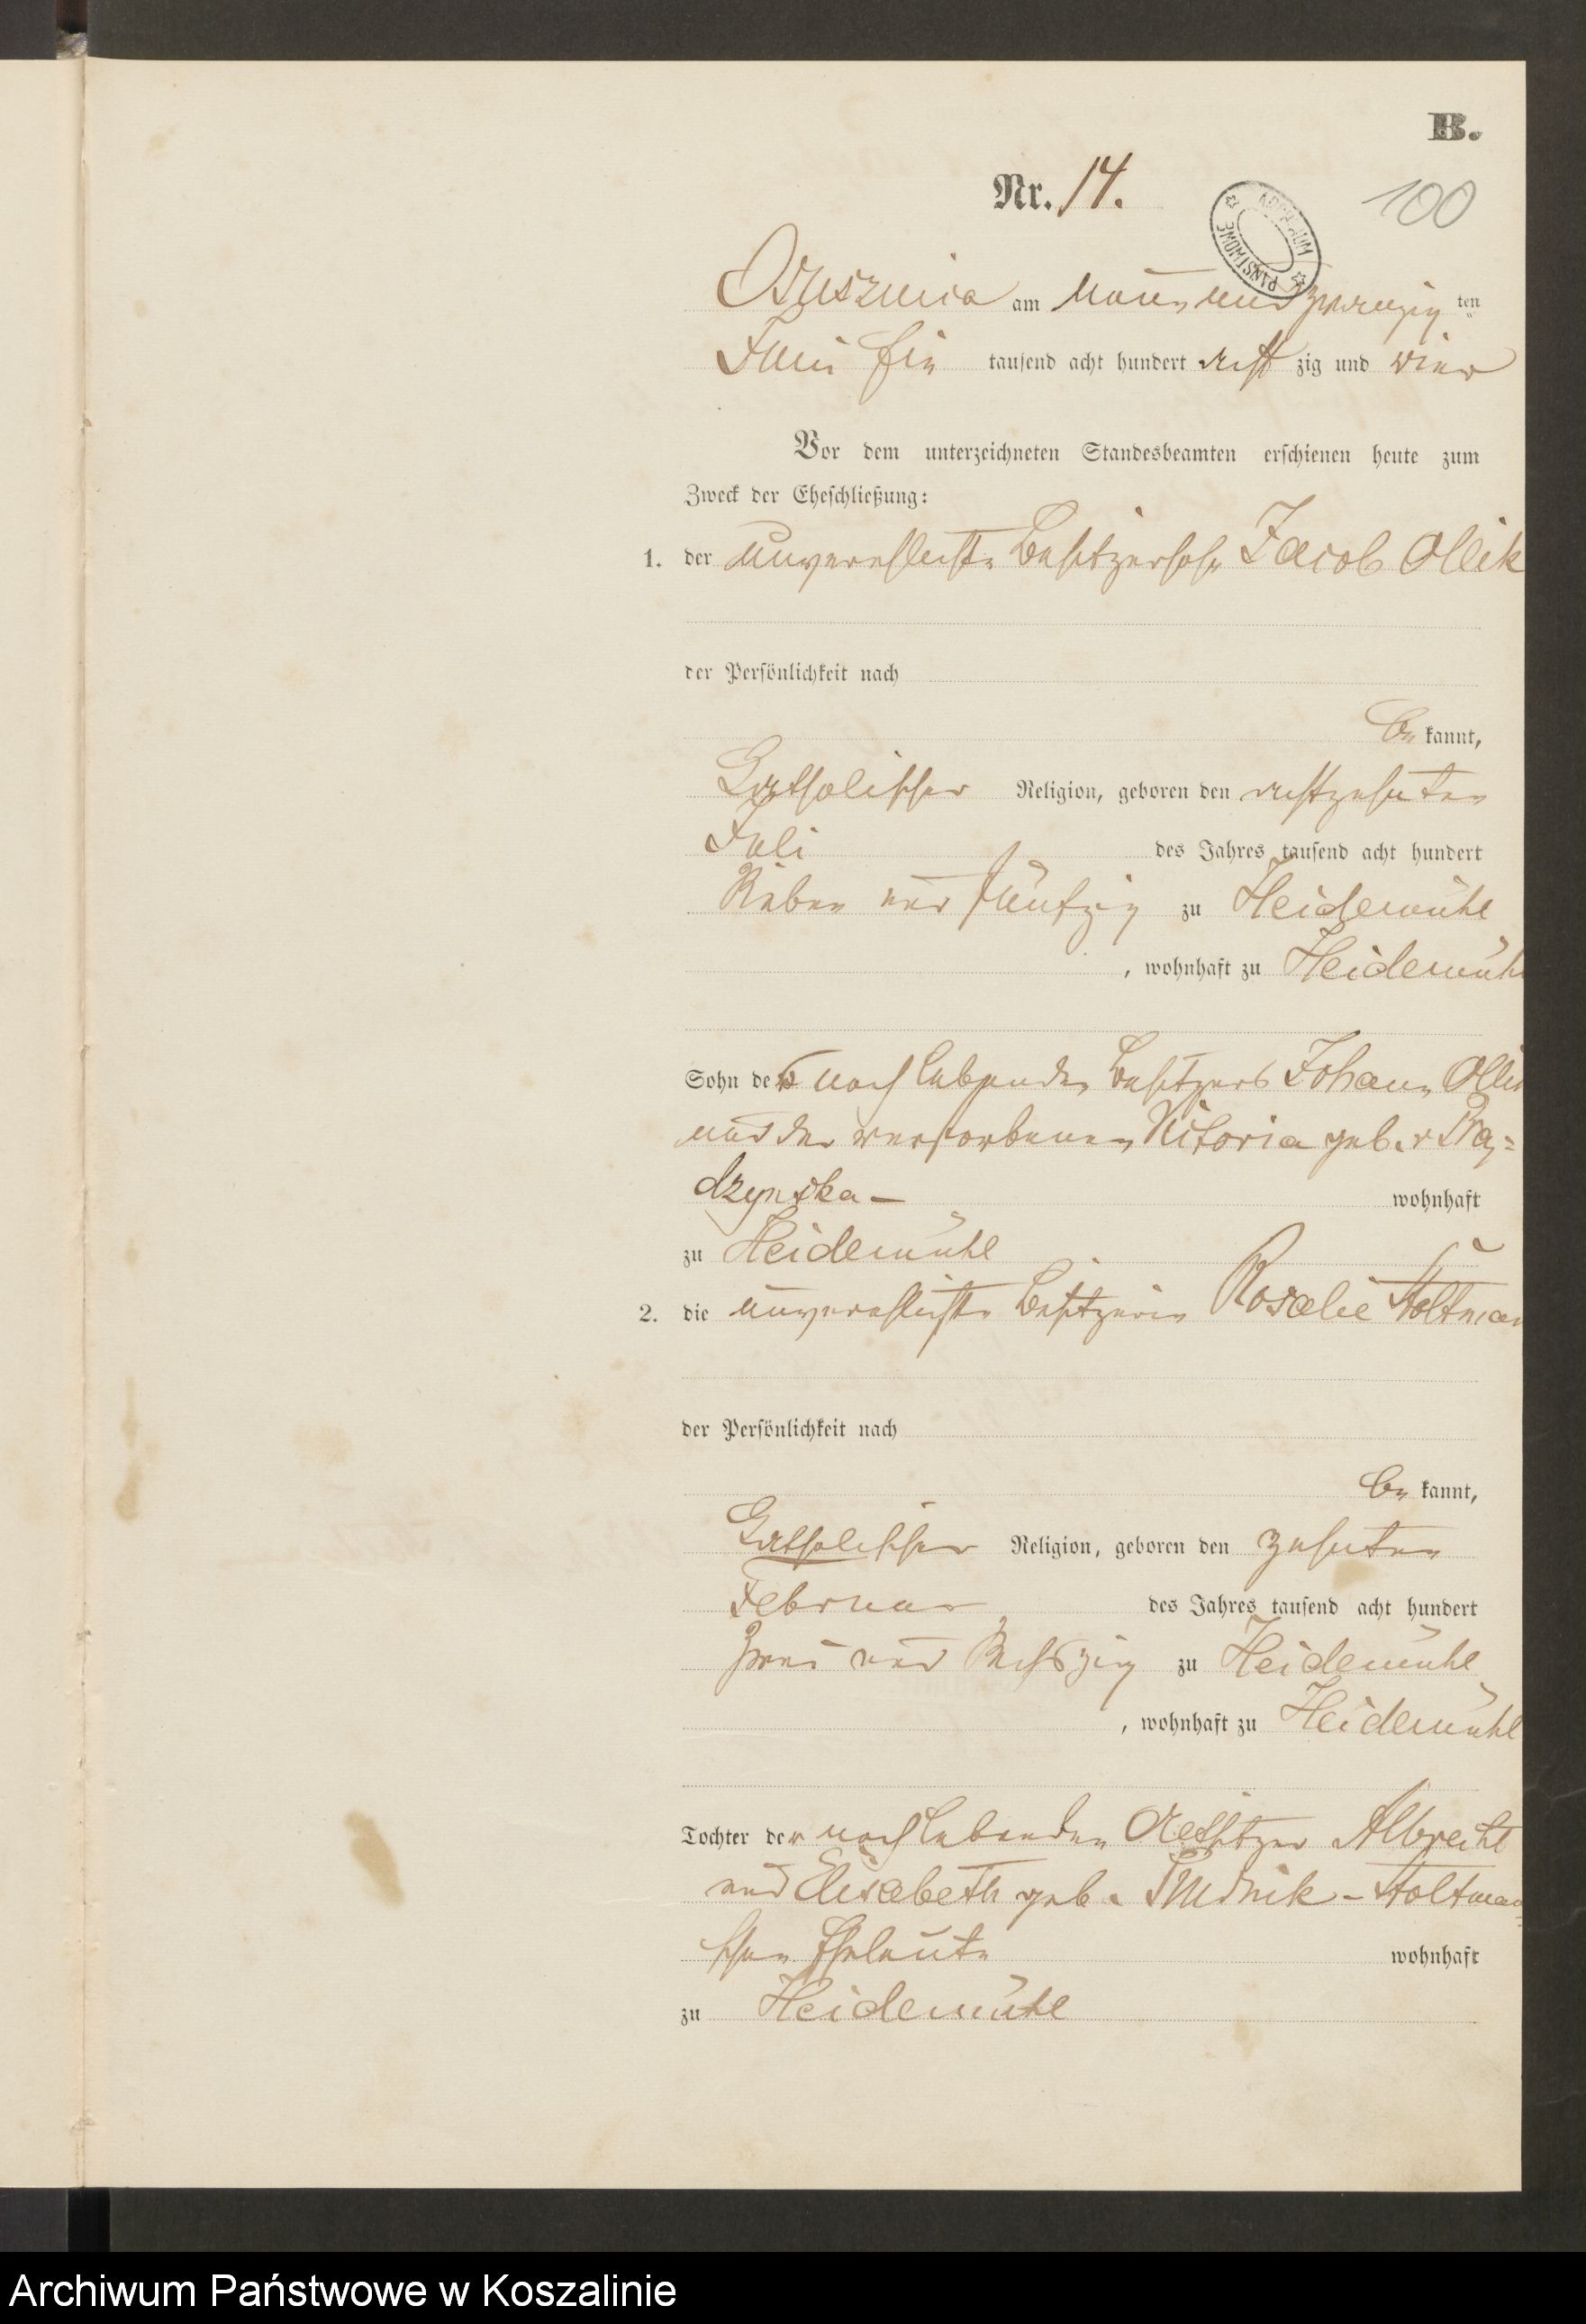 B.
Nr. 14.
100
ARCHIWUM PAŃSTWOWE
Ossusznica am neun und zwanzig ten
Juni Ein tausend acht hundert acht zig und vier
Vor dem unterzeichneten Standesbeamten erschienen heute zum
Zweck der Eheschließung:
1. der unverehlichte Besitzersohn Jacob Ollik
der Persönlichkeit nach
be kannt,
Katholischer Religion, geboren den achtzehnten
Juli des Jahres tausend acht hundert
Sieben und fünfzig zu Heidemühl
, wohnhaft zu Heidemühl
Sohn des noch lebenden Besitzers Johann Ollik
und der verstorbenen Victoria geb. v
dzynska - wohnhaft
zu Heidemühl
2. die unverehlichte Besitzerin Rosalie Stoltman
der Persönlichkeit nach
be kannt,
Katholischer Religion, geboren den zehnten
Februar des Jahres tausend acht hundert
Zwei und Sechszig zu Heidemühl
, wohnhaft zu Heidemühl
Tochter der noch lebenden Besitzer Albrecht
und Elisabeth geb. - Stoltman-
schen Eheleute wohnhaft
zu Heidemühl
Archiwum Państwowe w Koszalinie